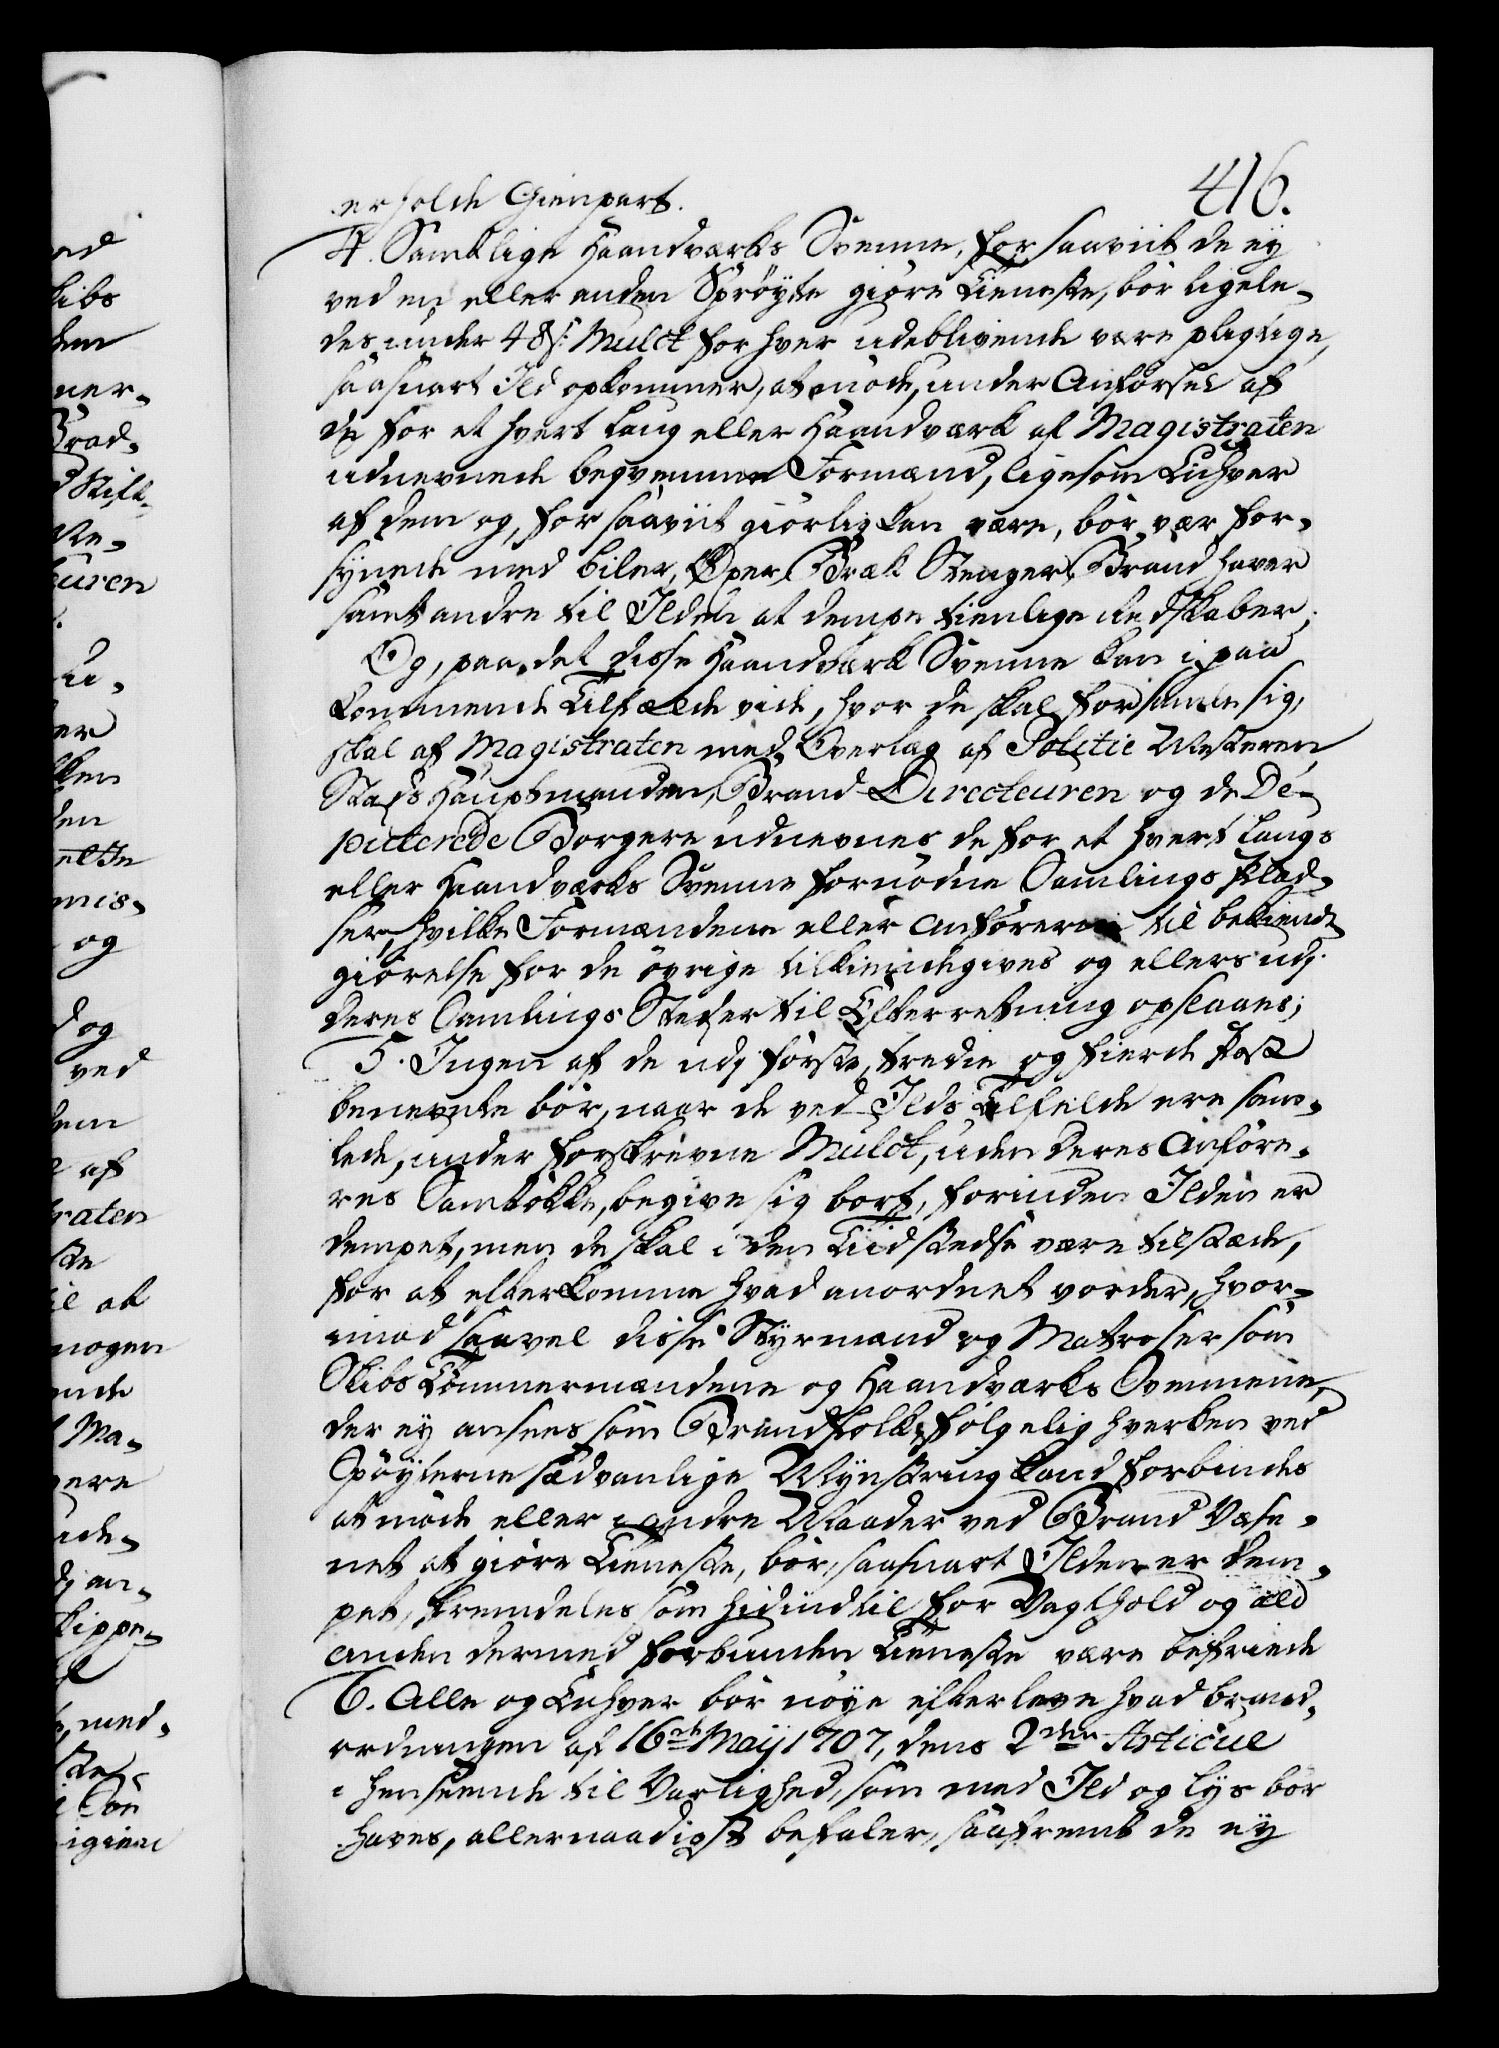 416.
erholde Gienpart.
4. Samtlige Haandværks Svenne, for saaviit de ey
ved en eller anden Sprøyte giøre Tieneste, bør ligele-
des under 48 s: Mulct for hver udeblivende være pligtige,
saasnart Ild opkommer, at møde, under Anførsel af
de for et hvert Laug eller Haandværk af Magistraten
udnevnede beqvemme Formænd, ligesom Enhver
af dem og, for saaviit giørlig kan være, bør vær for-
synede med biler, Øxer, Bræk Stenger, Brand hager
samt andre til Ilden at dempe tienlige Redskaber;
Og, paa det disse Haandværk Svenne kan i paa
kommende Tilfælde vide, hvor de skal forsamle sig,
skal af Magistraten med Overlæg af Politie Mesteren,
Stads Hauptmanden, Brand Directeuren og de De-
putterede Borgere udnevnes de for et hvert Laugs
eller Haandværks Svenne fornødne Samlings Plad-
ser, hvilke Formændene eller Anførerne til bekiendt
giørelse for de øvrige tilkiendegives og ellers udj
deres Samlings Steder til Efterretning opslaaes;
5. Ingen af de udj første, tredie og fierde Post
benevnte bør, naar de ved Ilds Tilfelde ere sam-
lede, under forskrevne Mulct, uden deres Anføre-
res Samtøkke, begive sig bort, forinden Ilden er
dempet, men de skal i den Tiid stedse være tilstæde,
for at efterkomme hvad anordnet vorder, hvor-
imod saavel disse Styrmænd og Matroser som
Skibs Tømmermændene og Haandværks Svennene,
der ey ansees som Brandfolk, følgelig hverken ved
Spøyterne sædvanlige Mynstring kand forbindes
at møde eller i andre Maader ved Brand Væse-
net at giøre Tieneste, bør, saasnart Ilden er dem-
pet, fremdeles som hidindtil for Vagthold og ald
anden dermed forbunden Tieneste være befriede
6. Alle og Enhver bør nøye efterleve hvad brand-
ordningen af 16de Maij 1707, dens 2den Articul
i henseende til Varlighed, som med Ild og Lys bør
haves, allernaadigst befaler, saafremt de ey